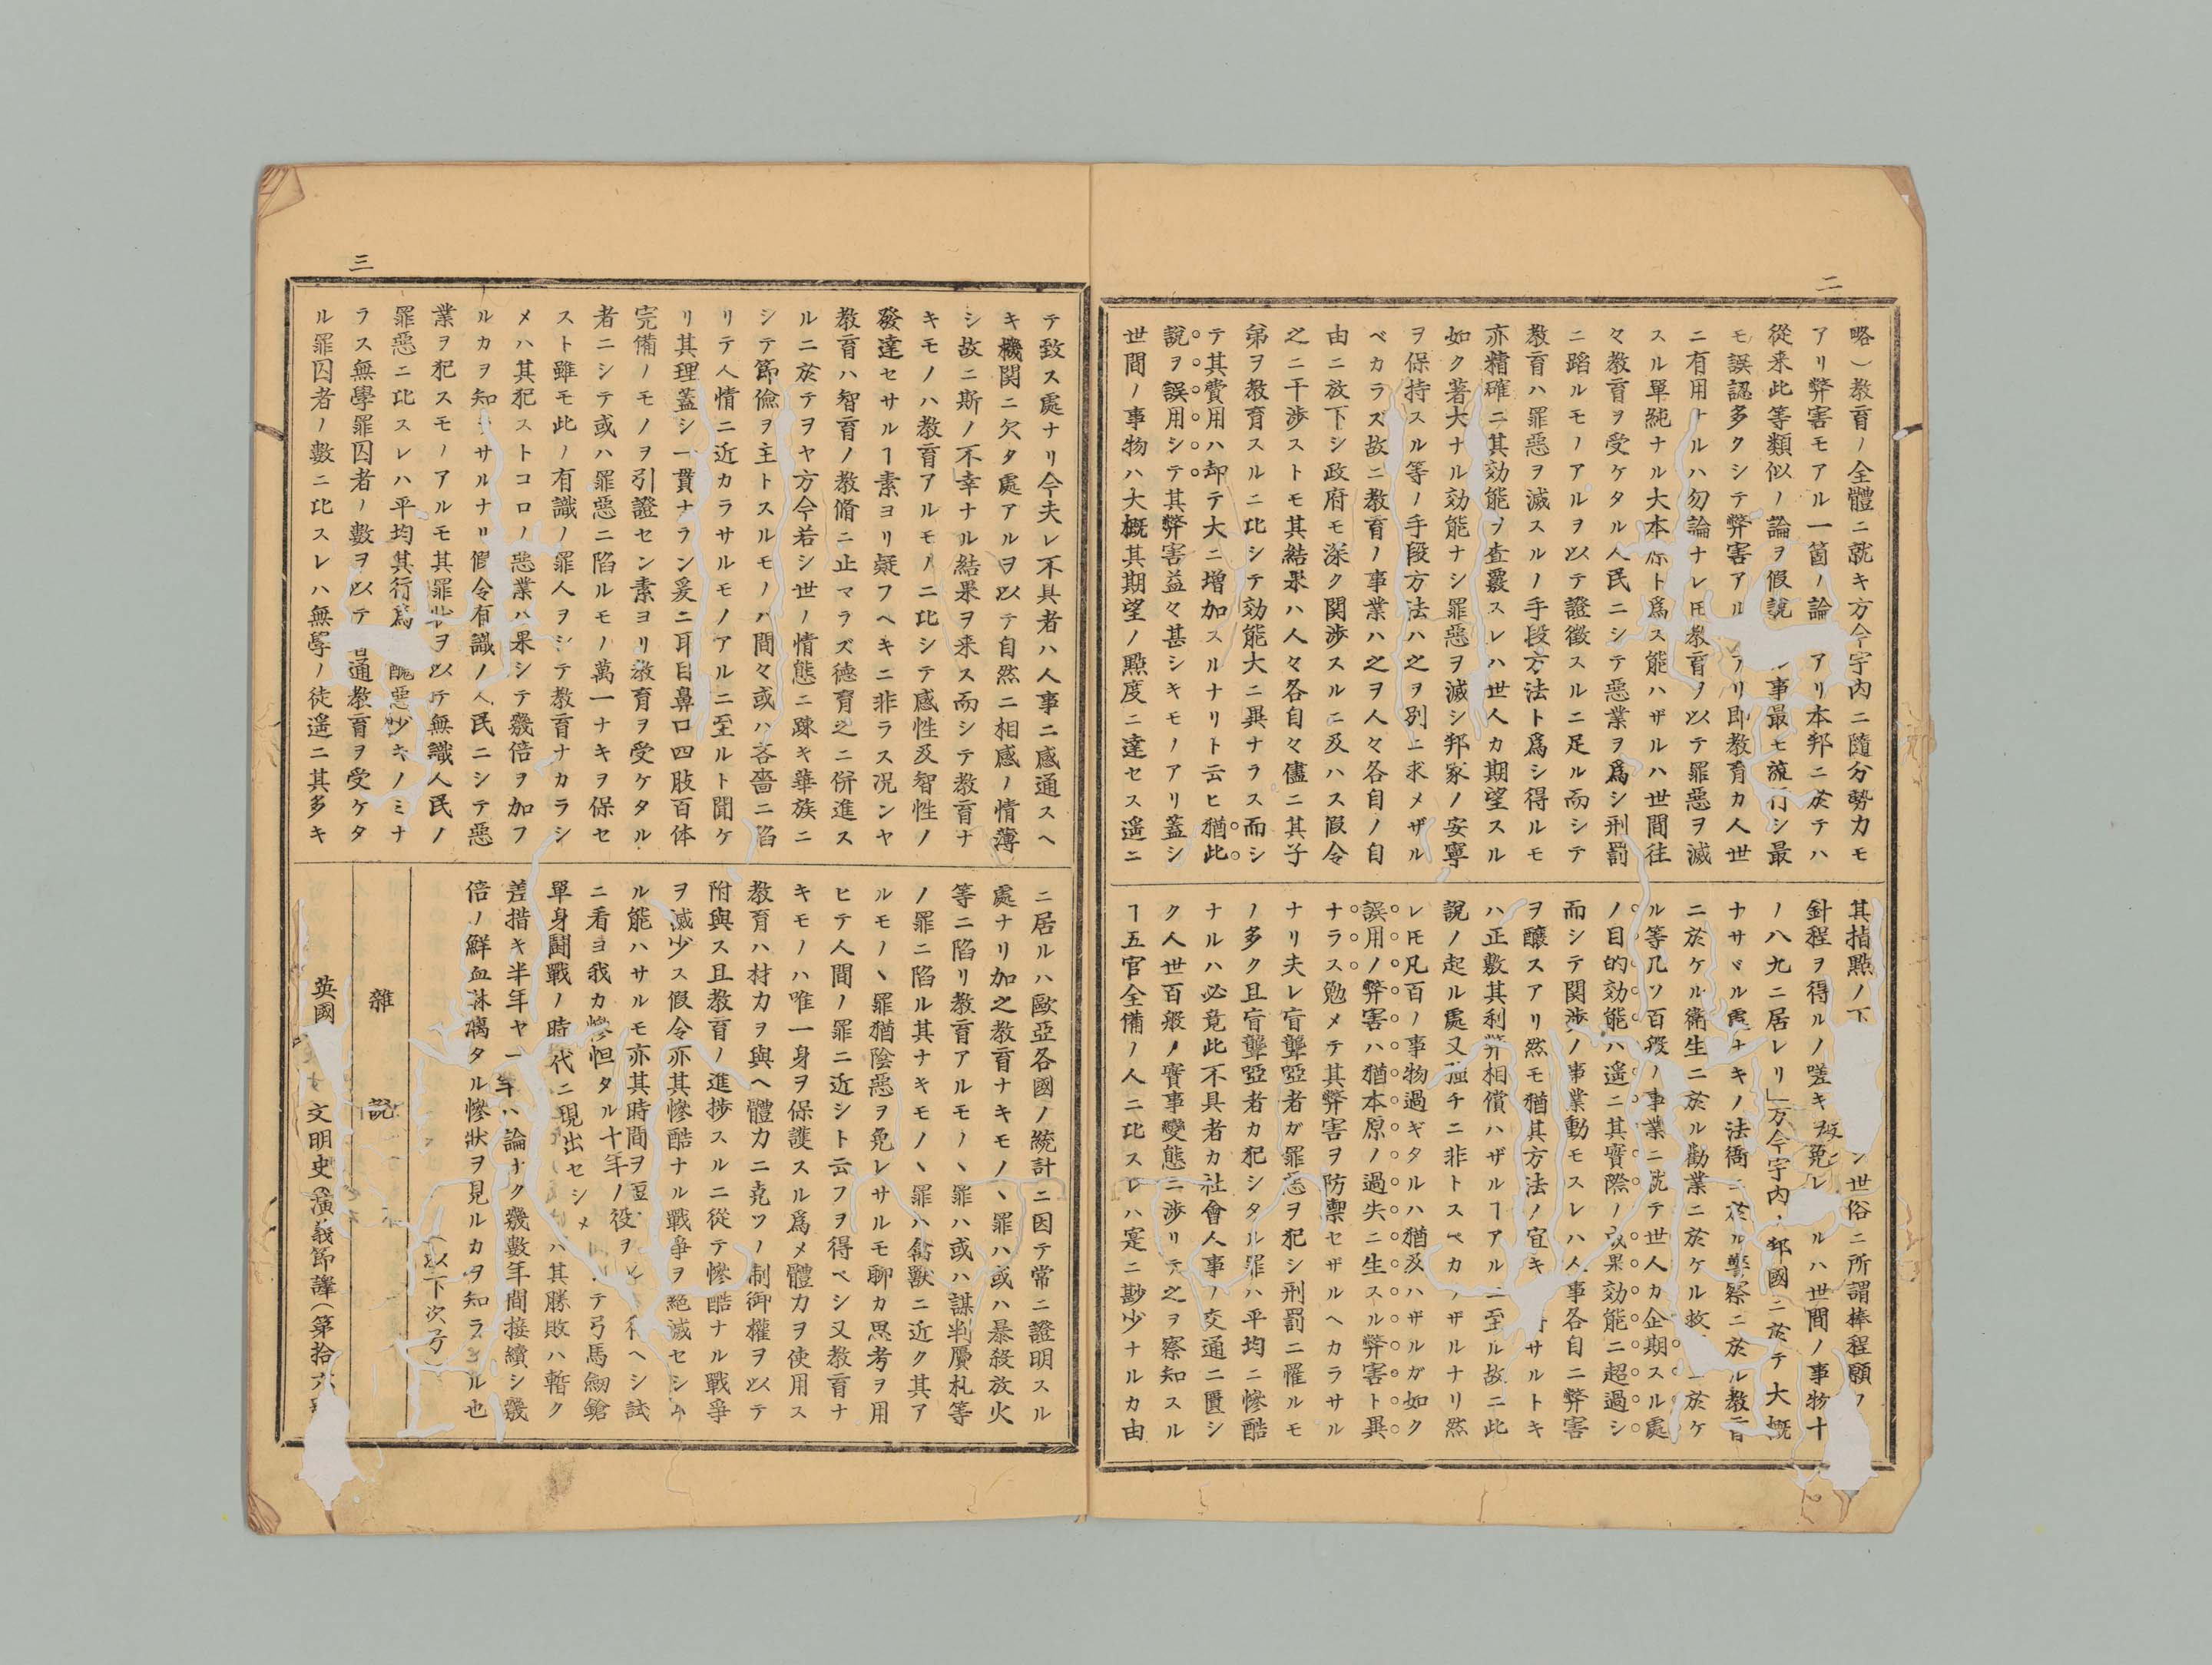 二
略)教育ノ全體ニ就キ方今宇内ニ隨分勢カモ
アリ弊害モアル一箇ノ論 アリ本邦ニ於テハ
從来此等類似ノ論ヲ假說 事最モ流行シ最
モ誤認多クシテ弊害アル アリ即教育カ人世
ニ有用ナルハ勿論ナレ𪜈教育ヲ以テ罪惡ヲ滅
スル單純ナル大本 ト爲ス能ハザルハ世間往
々教育ヲ受ケタル人民ニシテ惡業ヲ爲シ刑罰
ニ蹈ルモノアルヲ以テ證徵スルニ足ル而シテ
教育ハ罪惡ヲ滅スルノ手段方法ト爲シ得ルモ
亦精確ニ其効能ヲ查覈スレハ世人カ期望スル
如ク著大ナル効能ナシ罪惡ヲ滅シ邦家ノ安寧
ヲ保持スル等ノ手段方法ハ之ヲ別ニ求メザル
ベカラズ故ニ教育ノ事業ハ之ヲ人々各自ノ自
由ニ放下シ政府モ深ク関渉スルニ及ハス假令
之ニ干渉ストモ其結果ハ人々各自々儘ニ其子
弟ヲ教育スルニ比シテ効能大ニ異ナラス而シ
テ其費用ハ却テ大ニ增加スルナリト云ヒ猶此
說ヲ誤用シテ其弊害益々甚シキモノアリ蓋シ
世間ノ事物ハ大概其期望ノ點度ニ達セス遥ニ
其指點ノ下 ン世俗ニ所謂棒程願フ
針程ヲ得ルノ嗟キ 免レ ルハ世間ノ事物十
ノ八九ニ居レリ」方今宇内 邦國ニ於テ大概
ナサヾル處ナキノ法衙ニ於ル警察ニ於ル教育
ニ於ケル衛生ニ於ル勸業ニ於ケル救 ニ於ケ
ル等凡ソ百般ノ事業ニ就テ世人カ企期スル處
ノ目的効能ハ遥ニ其實際ノ成果効能ニ超過シ
而シテ関渉ノ事業動モスレハ人事各自ニ弊害
ヲ釀スアリ然モ猶其方法ノ宜キ サルトキ
ハ正敷其利弊相償ハザルヿアルニ至ル故ニ此
說ノ起ル處又 チニ非トスベカ ザルナリ然
レ𪜈凡百ノ事物過ギタルハ猶及ハザルガ如ク
誤用ノ弊害ハ猶本原ノ過失ニ生スル弊害ト異
ナラス勉メテ其弊害ヲ防禦セザルヘカラサル
ナリ夫レ盲聾啞者ガ罪惡ヲ犯シ刑罰ニ罹ルモ
ノ多ク且盲聾啞者カ犯シタル罪ハ平均ニ慘酷
ナルハ必竟此不具者カ社會人事ノ交通ニ匱シ
ク人世百般ノ實事變態ニ渉リテ之ヲ察知スル
ヿ五官全備ノ人ニ比スレハ寔ニ尠少ナルカ由
三
テ致ス處ナリ今夫レ不具者ハ人事ニ感通スヘ
キ機関ニ欠タ處アルヲ以テ自然ニ相感ノ情薄
シ故ニ斯ノ不幸ナル結果ヲ来ス而シテ教育ナ
キモノハ教育アルモノニ比シテ感性及智性ノ
發達セサルヿ素ヨリ疑フヘキニ非ラス况ンヤ
教育ハ智育ノ教脩ニ止マラズ德育之ニ併進ス
ルニ於テヲヤ方今若シ世ノ情態ニ踈キ華族ニ
シテ節儉ヲ主トスルモノハ間々或ハ吝嗇ニ陷
リテ人情ニ近カラサルモノアルニ至ルト聞ケ
リ其理蓋シ一貫ナラン爰ニ耳目鼻口四肢百体
完備ノモノヲ引證セン素ヨリ教育ヲ受ケタル
者ニシテ或ハ罪惡ニ陷ルモノ萬一ナキヲ保セ
スト雖モ此ノ有識ノ罪人ヲシテ教育ナカラシ
メハ其犯ストコロノ惡業ハ果シテ幾倍ヲ加フ
ルカヲ知ラサルナリ假令有識ノ人民ニシテ惡
業ヲ犯スモノアルモ其罪 ヲ以テ無識人民ノ
罪惡ニ比スレハ平均其行爲 醜惡少キノミナ
ラス無學罪囚者ノ數ヲ以テ 通教育ヲ受ケタ
ル罪囚者ノ數ニ比スレハ無學ノ徒遥ニ其多キ
ニ居ルハ歐亞各國ノ統計ニ因テ常ニ證明スル
處ナリ加之教育ナキモノヽ罪ハ或ハ暴殺放火
等ニ陷リ教育アルモノヽ罪ハ或ハ謀判贋札等
ノ罪ニ陷ル其ナキモノヽ罪ハ禽獸ニ近ク其ア
ルモノヽ罪猶陰惡ヲ免レサルモ聊カ思考ヲ用
ヒテ人間ノ罪ニ近シト云フヲ得ベシ又教育ナ
キモノハ唯一身ヲ保護スル爲メ體力ヲ使用ス
教育ハ材力ヲ與ヘ體力ニ克ツノ制御權ヲ以テ
附與ス且教育ノ進捗スルニ從テ慘酷ナル戰爭
ヲ滅少ス假令亦其慘酷ナル戰爭ヲ絶滅セシム
ル能ハサルモ亦其時間ヲ ヘシ試
ニ看ヨ我カ慘怛タル十年ノ役ヲ
單身鬪戰ノ時代ニ現出セシメ テ弓馬劒鎗
差措キ半年ヤ一年ハ論ナク幾數年間接續シ幾 ハ其勝敗ハ暫ク
倍ノ鮮血淋漓タル慘狀ヲ見ルカヲ知ラ ル也
(以下次号)
雜 說
英國 文明史演義節譯(第拾六